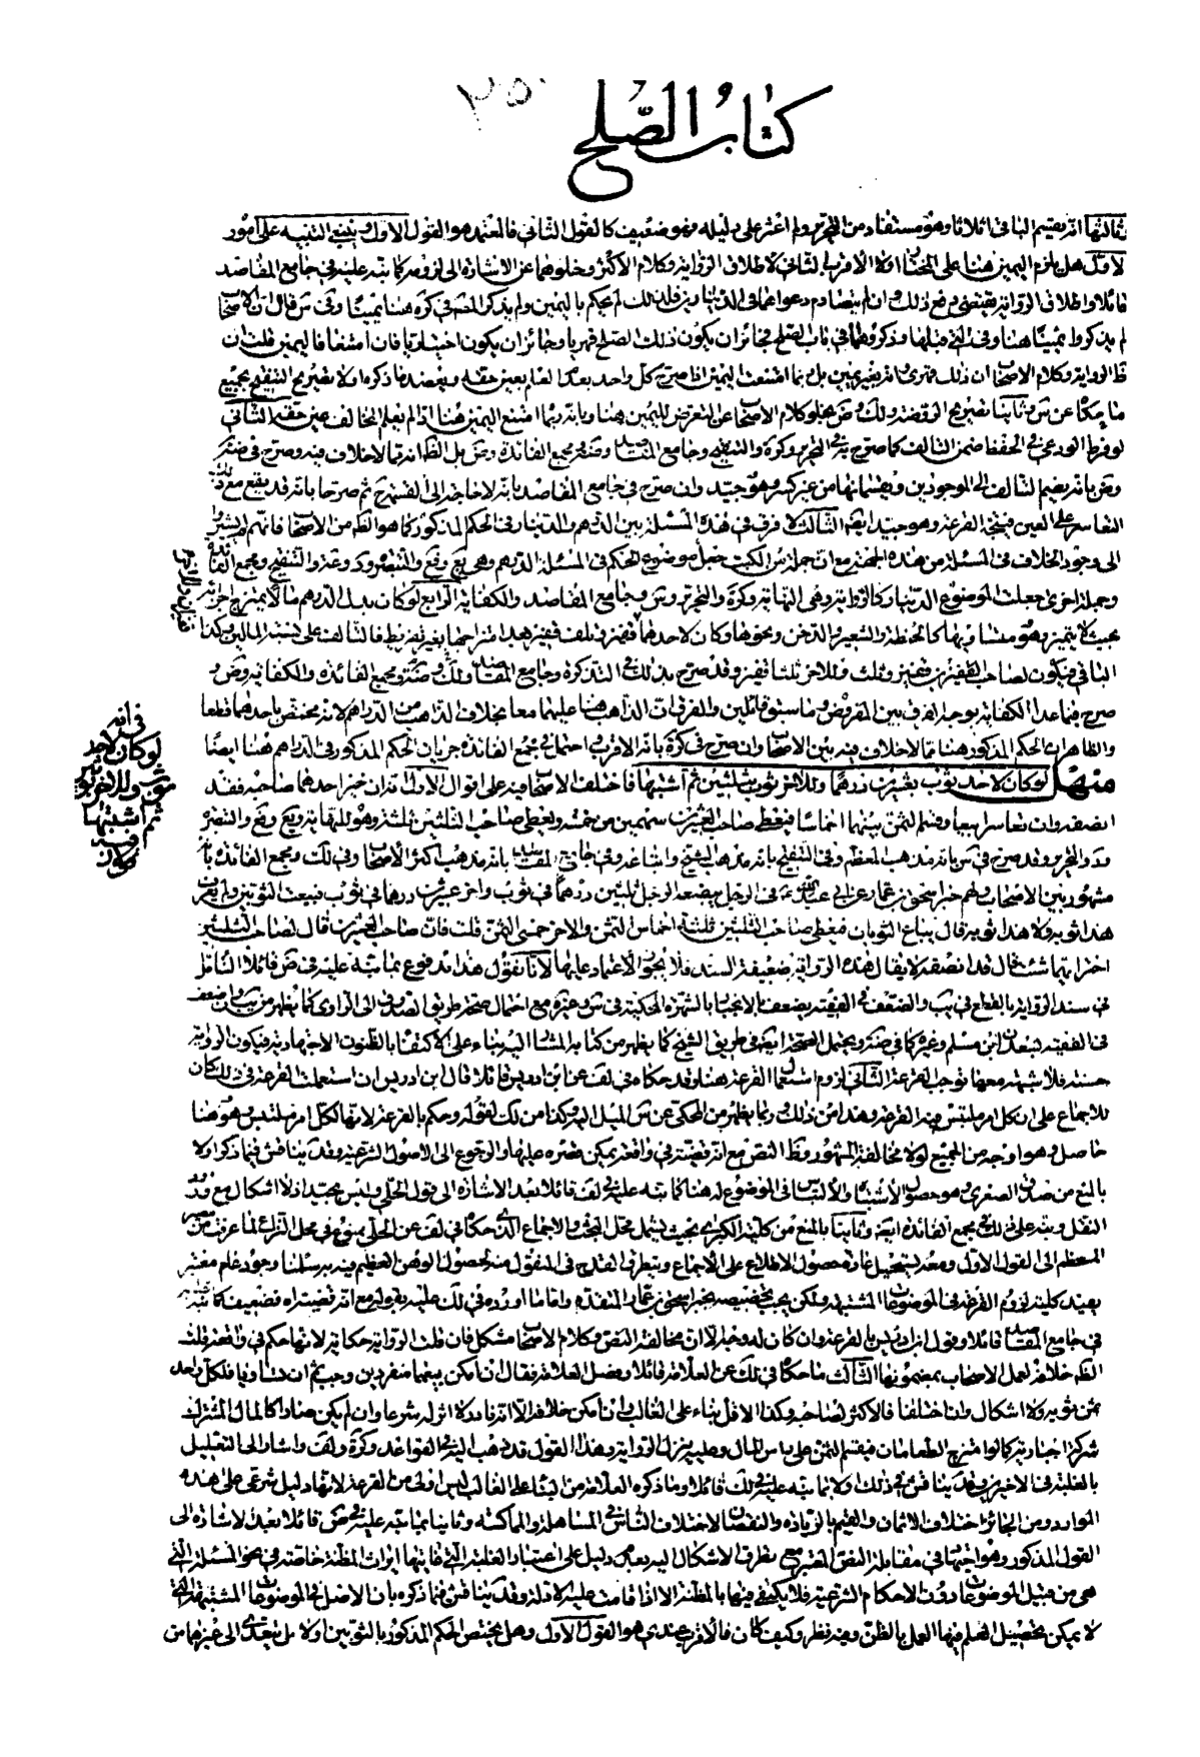 ٣٥٠
كتاب الصلح
ثالثها انه يقسم الباقى اثلاثا وهو مستفاد من التحرير ولم اعثر على دليله وهو ضعيف كالقول الثانى فالمعتمد هو القول الاول وينبغى التنبيه على امور
الاول هل يلزم اليمين هنا على او لا الاقرب الثانى لاطلاق الرواية وكلام الاكثر وخلوهما عن الاشارة الى لزومه كما نبه عليه فى جامع المقاصد
قائلا واطلاق الرواية يقتضى دفع ذلك وان لم يتصادم دعواهما فى الدينارين فلذلك لم يحكم باليمين ولم يذكر المصنف فى كره هنا يمينا وفى س قال ان الاصحاب
لم يذكروا يمينا هنا وفى التى قبلها وذكروهما فى باب الصلح فجائز ان يكون ذلك الصلح قهريا وجائز ان يكون اختياريا فان امتنعا فاليمين قلت ان
ظ الرواية وكلام الاصحاب ان ذلك قهرى وانه بغير يمين بل ربما امتنعت اليمين اذا صرح كل واحد بعدم العلم بعين حقه ويعضد ما ذكره الاتصريح التنقيح بجميع
ما حكاه عن س وثانيا تصريح الروضة ولك وض بخلو كلام الاصحاب عن التعرض لليمين هنا وبانه ربما امتنع اليمين هنا اذا لم يعلم الحالف عين حقه الثانى
لو فرط الودعى فى الحفظ ضمن التالف كما صرح به فى التحرير وكره والتنقيح وجامع المقاصد وضه ومجمع الفائدة وض بل الظ انه مما لا خلاف فيه وصرح فى ضه
وض بانه يضم التالف الى الموجودين ويقتسمانها من غير كسر وهو جيد وان صرح فى جامع المقاصد بانه لا حاجة الى القسمة ثم صرحا بانه قد يقع مع ذلك
التعاسر على العين فيتجه القرعة وهو جيد ايضا الثالث لا فرق فى هذه المسئلة بين الدرهم والدينار فى الحكم المذكور كما هو الظ من الاصحاب فانهم لم يشيروا
الى وجود الخلاف فى المسئلة من هذه الجهة مع ان جملة من الكتب جعل موضوع الحكم فى المسئلة الدرهم وهى يع وفع والتبصره وكد وعد والتنقيح ومجمع الفائدة
وجملة اخرى جعلت الموضوع الدينار كالرواية وهى النهاية وكره والتحرير وس وجامع المقاصد والكفاية الرابع لو كان بدل الدرهم مالا يمتزج اجزائه
بحيث لا يتميز وهو متساويها كالحنطة والشعير والدخن ونحوها وكان لاحدهما قفيز وتلف قفيز بعد امتزاجها بغير تفريط فالتالف على نسبة المالين وكذا
الباقى فيكون لصاحب القفيزين قفيز وثلث وللاخر ثلثا قفيز وقد صرح بذلك فى التذكرة وجامع المقاصد ولك وضه ومجمع الفائدة والكفاية وض و
صرح فيما عدا الكفاية بوجه الفرق بين المفروض وما سبق قائلين والفرق ان الذاهب هنا عليهما معا بخلاف الذاهب من الدراهم لانه مختص باحدهما قطعا
والظاهر ان الحكم المذكور هنا مما لا خلاف فيه بين الاصحاب وان صرح فى كره بانه الاقرب واحتمل فى مجمع الفائدة جريان الحكم المذكور فى الدراهم هنا ايضا
منها لو كان لاحد ثوب بعشرين درهما وللاخر ثوب بثلثين ثم اشتبها فاختلف الاصحاب فيه على اقوال الاول انه ان خير احدهما صاحبه فقد
انصفه وان تعاسرا بيعا وقسم الثمن بينهما اخماسا فيعطى صاحب العشرين سهمين من خمسة ويعطى صاحب الثلثين ثلثة وهو للنهاية ويع وفع والتبصره
وعد والتحرير وقد صرح فى س بانه مذهب المعظم وفى التنقيح بانه مذهب الشيخ واتباعه وفى جامع المقاصد بانه مذهب اكثر الاصحاب وفى لك ومجمع الفائدة بانه
مشهور بين الاصحاب ولهم خبر اسحق بن عمار عن ابى عبد الله ع فى الرجل يبضعه الرجل ثلثين درهما فى ثوب واخر عشرين درهما فى ثوب فبعث الثوبين ولم يعرف
هذا ثوبه ولا هذا ثوبه قال يباع الثوبان فيعطى صاحب الثلثين ثلثة اخماس الثمن والاخر خمسى الثمن قلت فان صاحب العشرين قال لصاحب الثلثين
اختر ايهما شئت قال قد انصفه لا يقال هذه الرواية ضعيفة السند فلا يجوز الاعتماد عليها لانا نقول هذا مدفوع بما نبه عليه فى ض قائلا التامل
فى سند الرواية بالقطع فى يب والضعف فى الفقيه يضعف بالانجبار بالشهرة المحكية فى س وغيره مع احتمال صحة طريق الصدوق الى الراوى كما يظهر من
فى الفقيه بعد ابن مسلم وغيره كما فى ضه ويحتمل الصحة ايضا فى طريق الشيخ كما يظهر من كتابه المشار اليه بناء على الاكتفاء بالظنون الاجتهادية فيكون الرواية
حسنة فلا شبهة معها توجب القرعة الثانى لزوم استعمال القرعة هنا وقد حكاه فى لف عن ابن ادريس قائلا قال ابن ادريس ان استعملت القرعة فى ذلك كان
للاجماع على ان كل امر ملتبس فيه القرعة وهذا من ذلك وربما يظهر من المحكى عن س الميل اليه وكذا من لك لقوله وحكم بالقرعة لانها لكل امر ملتبس وهو هنا
حاصل وهو اوجه من الجميع لولا مخالفة المشهور وظ النص مع انه قضية فى واقعة يمكن قصره عليها والرجوع الى الاصول الشرعية وقد يناقش فيما ذكر اولا
بالمنع من صدق الصغرى وهو حصول الاشتباه والالتباس فى الموضوع له هنا كما نبه عليه فى لف قائلا بعد الاشارة الى قول الحلى وليس بجيد اذ لا اشكال مع ورود
النقل ونبه على ذلك فى مجمع الفائدة ايضا وثانيا بالمنع من كلية الكبرى بحيث يشمل محل البحث والاجماع الذى حكاه فى لف عن الحلى ممنوع فى محل النزاع لما عرفت من مصير
المعظم الى القول الاول ومعه يستحيل عادة حصول الاطلاع على الاجماع ويتطرق القدح فى المنقول منه لحصول الوهن العظيم فيه بر سلمنا وجود عام معتبر
يفيد كلية لزوم القرعة فى الموضوعات المشتبهة ولكن يجب تخصيصه بخبر اسحق بن عمار المتقدم واما ما اورده فى لك عليه بقوله مع انه قضية اه فضعيف كما نبه
فى جامع المقاصد قائلا وقول ابن ادريس بالقرعة وان كان له وجه الا ان مخالفة النص وكلام الاصحاب مشكل فان قلت الرواية حكاية لانها حكم فى واقعة قلت
الظ خلافه لعمل الاصحاب بمضمونها الثالث ما حكاه فى لك عن العلامة قائلا وفصل العلامة فقال ان امكن بيعهما منفردين وجب ثم ان تساويا فلكل واحد
ثمن ثوبه ولا اشكال وان اختلفا فالاكثر لصاحبه وكذا الاقل بناء على الغالب وان امكن خلافه الا انه نادر لا اثر له شرعا وان لم يمكن صارا كالمال المشترك
شركة اجبارية كما لو امتزج الطعامان فيقسم الثمن على راس المال وعليه ينزل الرواية وهذا القول قد ذهب اليه فى القواعد وكره ولف واشار الى التعليل
بالغلبة فى الاخيرين وقد يناقش فى ذلك اولا بما نبه عليه فى لك قائلا وما ذكره العلامة من البناء على الغالب ليس اولى من القرعة لانها دليل شرعى على هذه
الموارد ومن الجائز اختلاف الاثمان والقيم بالزيادة والنقصان لاختلاف الناس فى المساهلة والمماكسة وثانيا بما نبه عليه فى ض قائلا بعد الاشارة الى
القول المذكور وهو اجتهاد فى مقابلة النص المعتبر مع تطرق الاشكال اليه بعدم دليل على اعتبار الغلبة التى غايتها ايراث المظنة خاصة فى نحو المسئلة التى
هى من قبيل الموضوعات دون الاحكام الشرعية فلا يكتفى فيها بالمظنة الا اذا قامت عليه الادلة وقد يناقش فيما ذكره بان الاصل فى الموضوعات المشتبهة التى
لا يمكن تحصيل العلم فيها العمل بالظن وفيه نظر وكيف كان فالاقرب عندى هو القول الاول وهل يختص الحكم المذكور بالثوبين اولا بل يتعدى الى غيرها من
فى انه
لو كان لاحد
ثوب وللاخر ثوب
ثم اشتبها